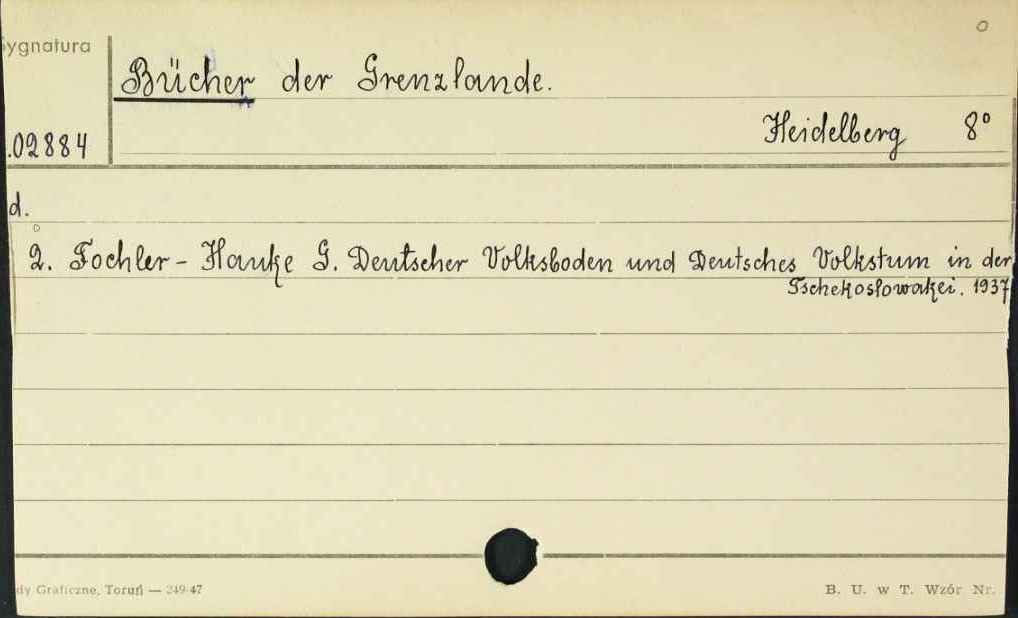 Sygnatura
Bücher der Grenzlande.
Heidelberg 8°
.02884
d.
2. Fochler-Hauke G. Deutscher Volksboden und Deutsches Volkstum in der
Tschekoslowakei. 1937
dy Graficzne, Toruń — 249-47
B. U. w T. Wzór Nr.